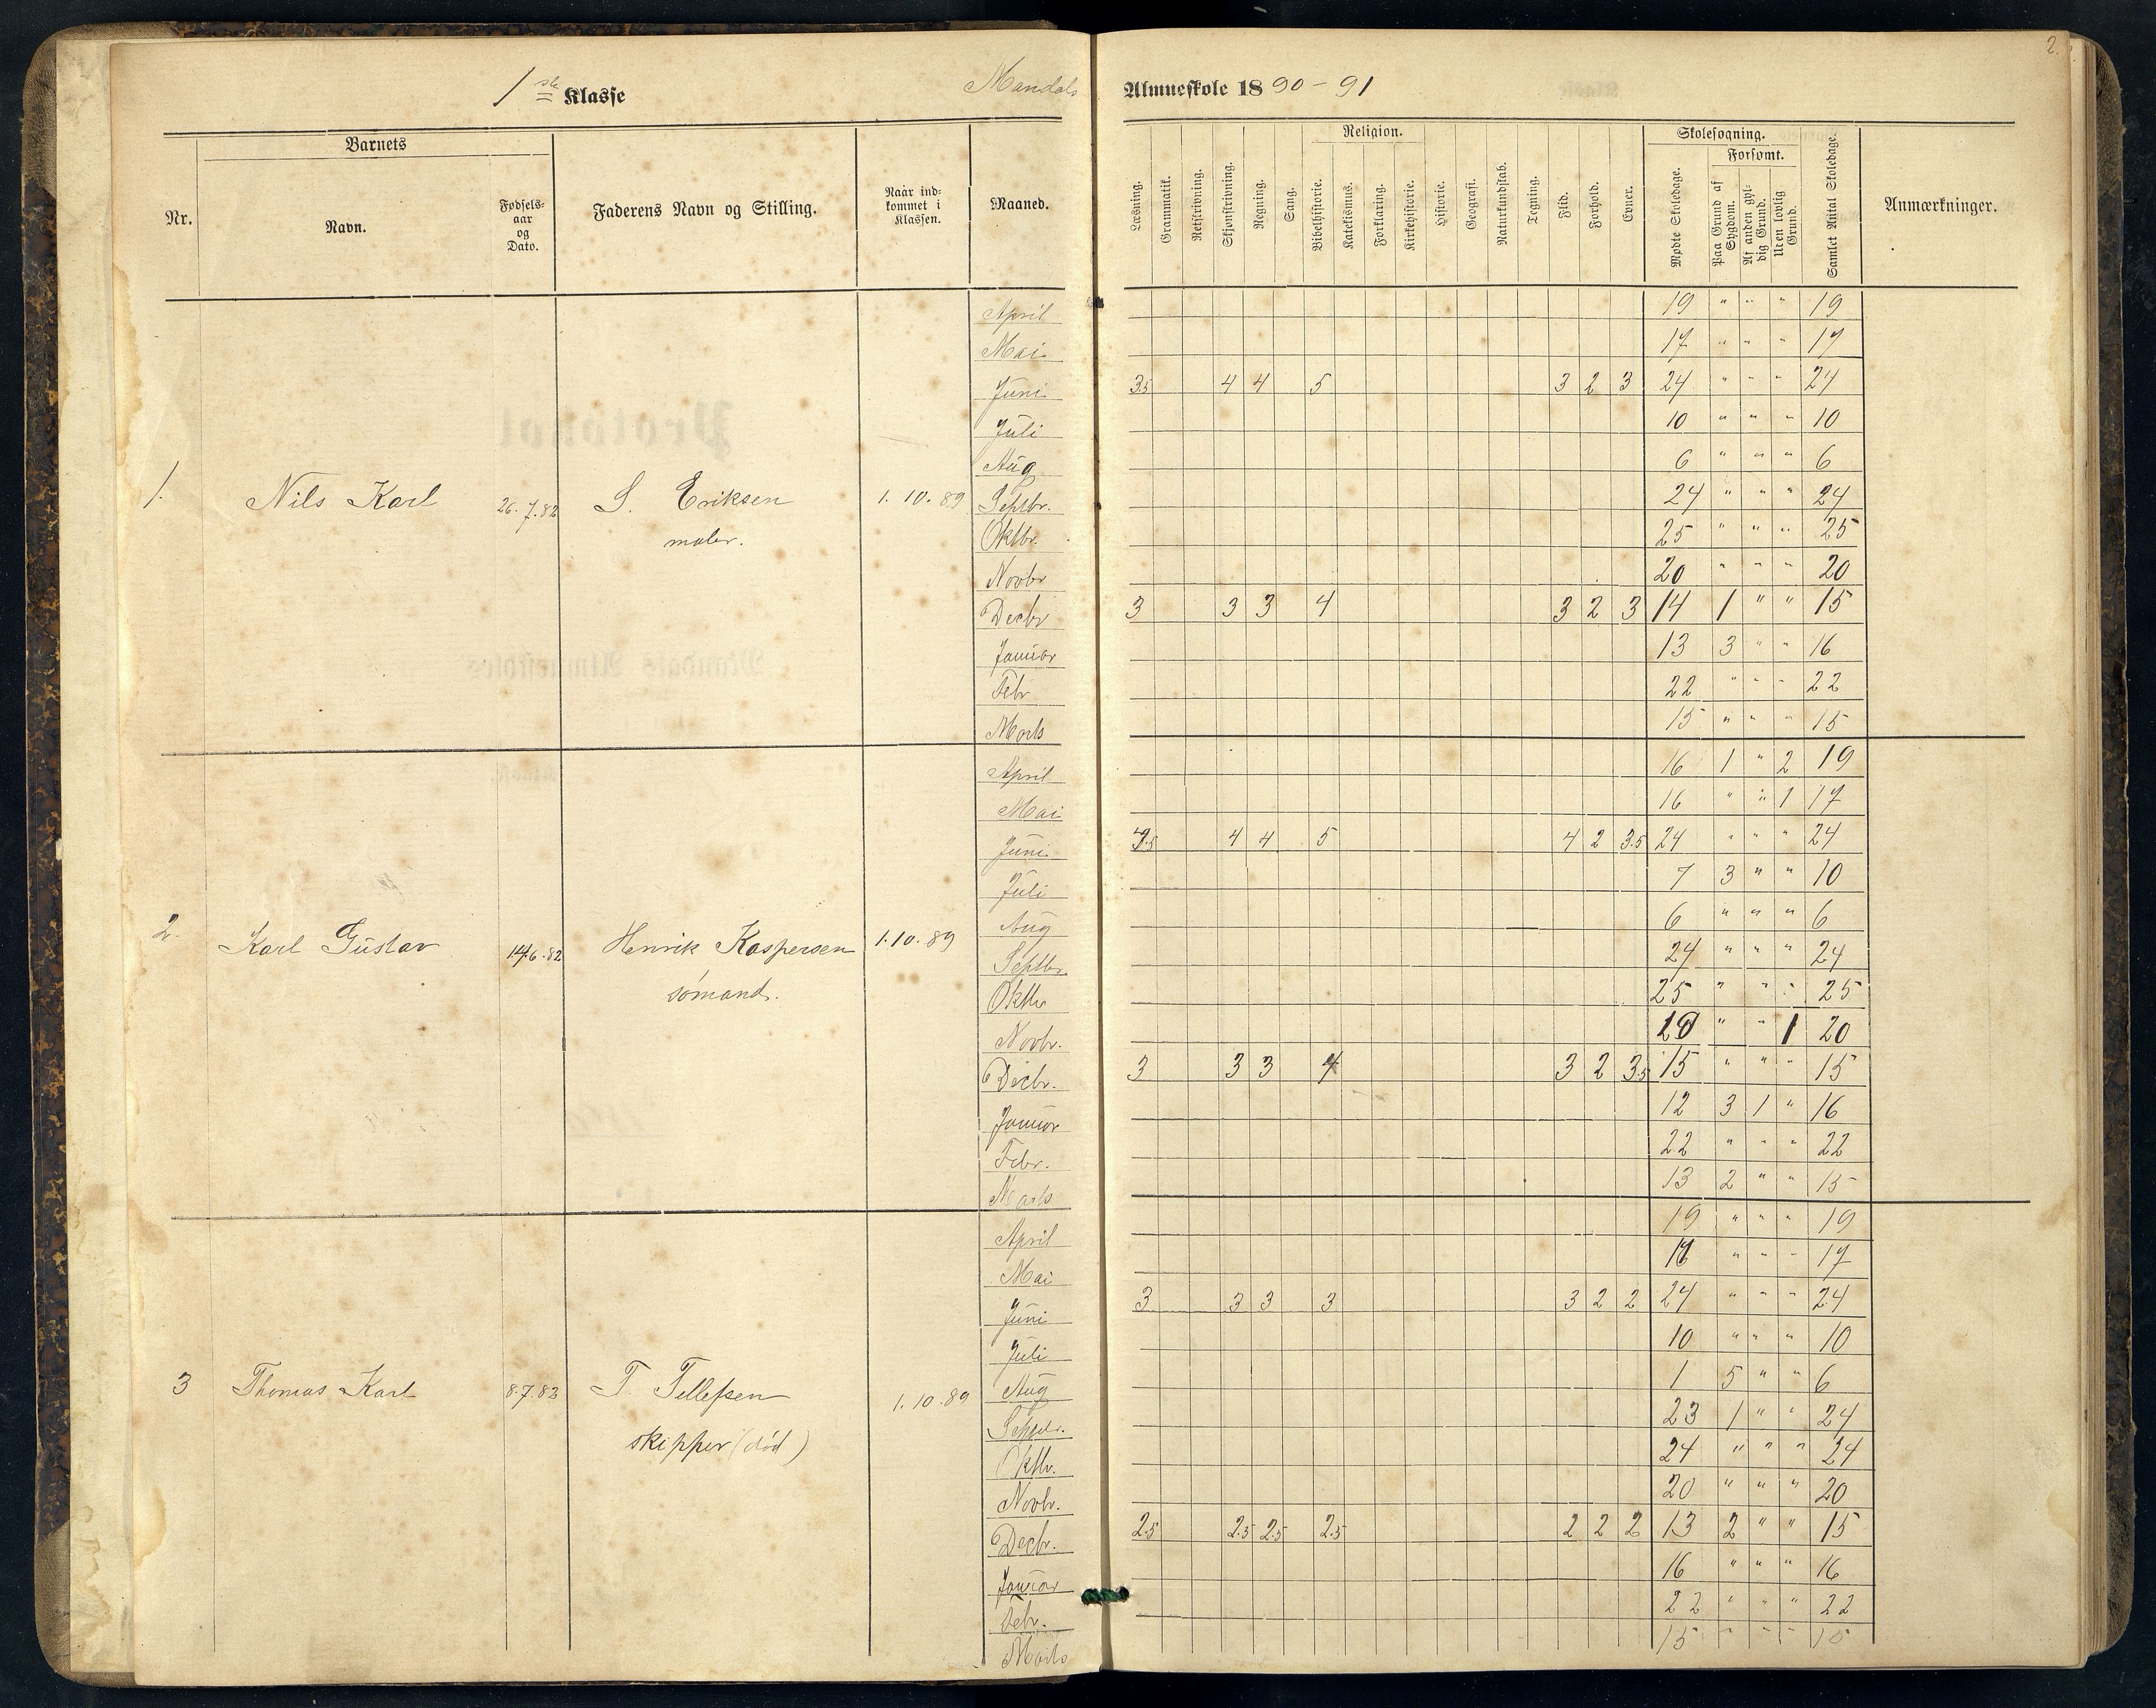 2.
1ste Klasse Mandals Almueskole 1890-91
Nr. Barnets Navn. Fødsels-aar og Dato. Faderens Navn og Stilling. Naar ind-kommet i Klassen. Maaned. Læsning. Grammatik. Retskrivning. Skjønskrivning. Regning. Sang. Religion. Bibelhistorie. Katekismus. Forklaring. Kirkehistorie. Historie. Geografi. Naturkundskab. Tegning. Flid. Forhold. Evner. Skolesøgning. Mødte Skoledage. Forsømt. Paa Grund af Sygdom. Af anden gyl-dig Grund. Uden lovlig Grund. Samlet Antal Skoledage. Anmærkninger.
April 19 " " " 19
Mai 17 " " " 17
Juni 3.5 4 4 5 3 2 3 24 " " " 24
Juli 10 " " " 10
Aug 6 " " " 6
1. Nils Karl 26.7.82 S. Eriksen 1.10.89 Septbr. 24 " " " 24
maler. Oktbr. 25 " " " 25
Novbr 20 " " " 20
Decbr 3 3 3 4 3 2 3 14 1 " " 15
Januar 13 3 " " 16
Febr 22 " " " 22
Marts 15 " " " 15
April 16 1 " 2 19
Mai 16 " " 1 17
Juni 3.5 4 4 5 4 2 3.5 24 " " " 24
Juli 7 3 " " 10
Aug 6 " " " 6
2. Karl Gustav 14.6.82 Henrik Kaspersen 1.10.89 Septbr 24 " " " 24
sømand. Oktbr 25 " " " 25
Novbr. 19 " " 1 20
Decbr. 3 3 3 4 3 2 3.5 15 " " " 15
Januar 12 3 1 " 16
Febr. 22 " " " 22
Marts 13 2 " " 15
April 19 " " " 19
Mai 17 " " " 17
Juni 3 3 3 3 3 2 2 24 " " " 24
Juli 10 " " " 10
3 Thomas Karl 8.7.83 T. Tellefsen 1.10.89 Aug 1 5 " " 6
Septbr. 23 1 " " 24
skipper (død) Oktbr. 24 " " " 24
Novbr. 20 " " " 20
Decbr. 2.5 2.5 2.5 2.5 2 2 2 13 2 " " 15
Januar 16 " " " 16
Febr. 22 " " " 22
Marts 15 " " " 15